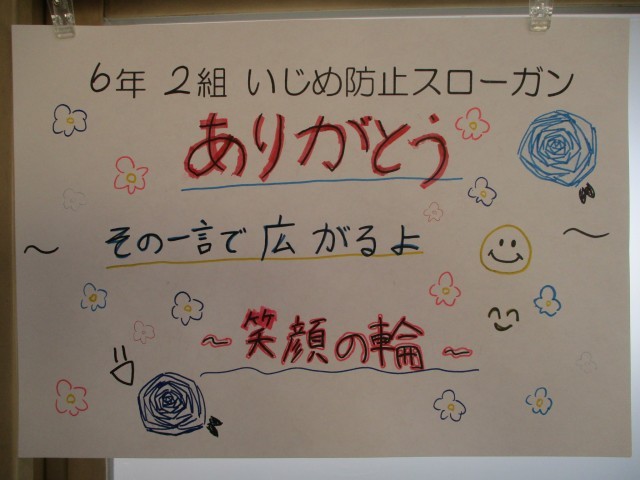 6年 2組 いじめ防止スローガン
ありがとう
その一言で広がるよ
～笑顔の輪～